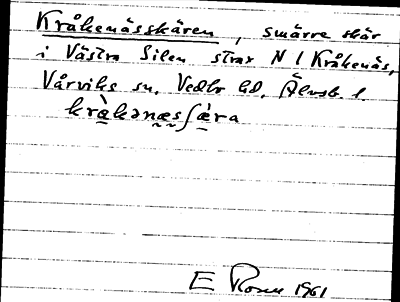 Kråkenässkären, smärre skär
i Västra Silen strax N / Kråkenäs,
Vårviks sn. Vedbo hd, Älvsb. l.
krὰkənæsʃæ̀ra
E Rosell 1961